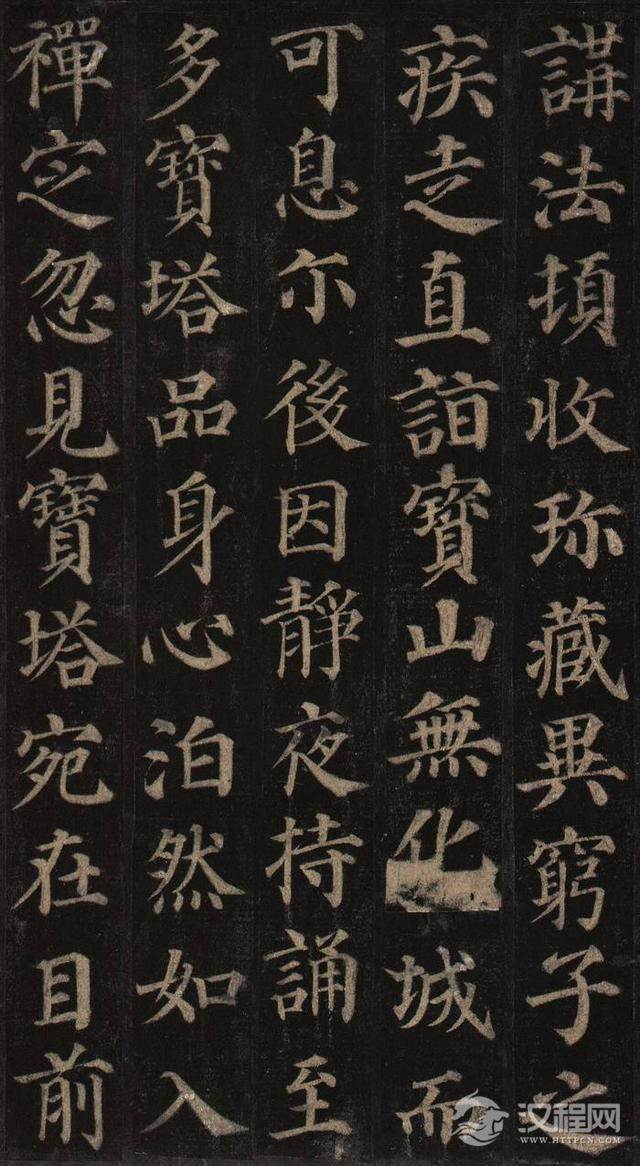 講法頓收珎藏異窮子之
疾走直詣寶山無化城而
可息尒後因靜夜持誦至
多寶塔品身心泊然如入
禪定忽見寶塔宛在目前
汉程网
WWW.HTTPCN.COM